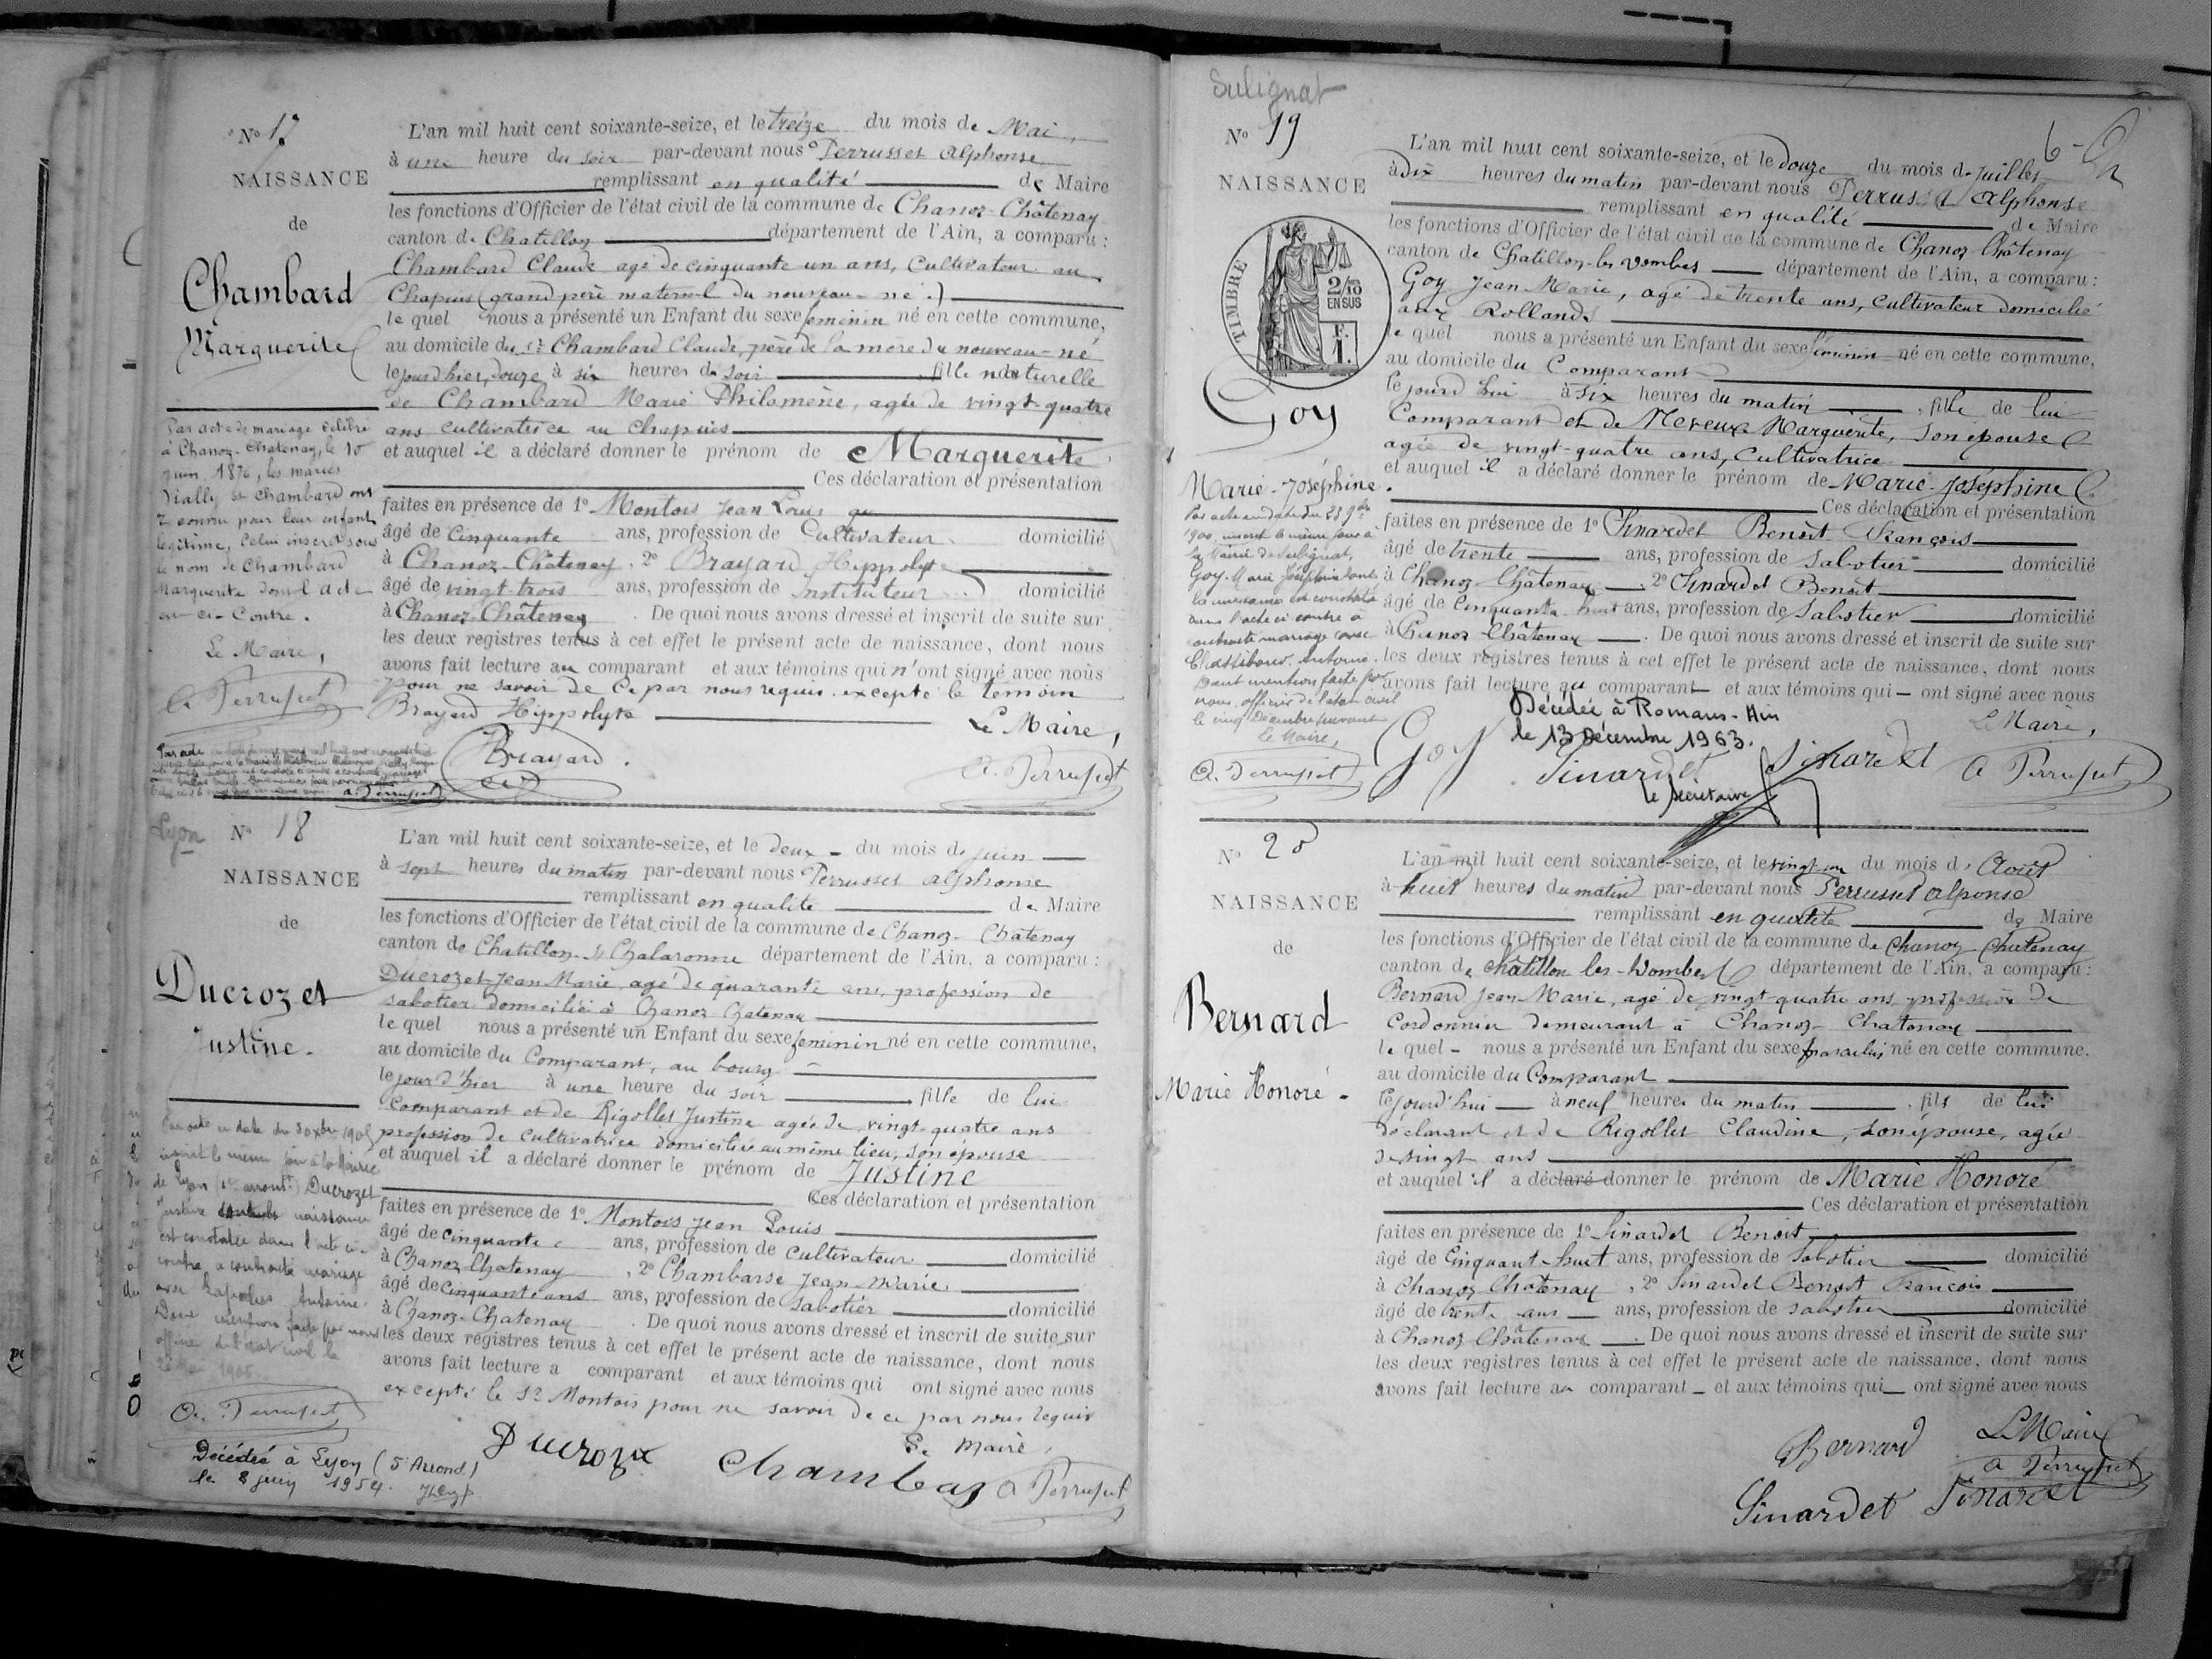 N° 17
NAISSANCE
de
Chambard
Marguerite
Par acte de mariage célébré
à Chanoz-Chatenay, le 10
juin 1876, les mariés
Vially et Chambard ont
reconnu pour leur enfant
légitime, celui inscrit sous
le nom de Chambard
Marguerite dont l'acte
est ci-contre.
Le Maire,
A. Perrusset
Par acte
A. Perrusset
L'an mil huit cent soixante-seize, et le treize du mois de Mai
à une heure du soir par-devant nous Perrusset Alphonse
remplissant en qualité de Maire
les fonctions d'Officier de l'état civil de la commune de Chanoz-Châtenay
canton de Chatillon département de l'Ain, a comparu :
Chambard Claude agé de cinquante un ans, Cultivateur au
Chapuis (grand père maternel du nouveau-né.)
le quel nous a présenté un Enfant du sexe féminin né en cette commune,
au domicile du sr Chambard Claude, père de la mère du nouveau-né
le jourd'hier, douze à six heures du soir fille naturelle
de Chambard Marie Philomène, agée de vingt-quatre
ans cultivatrice au Chapuis
et auquel il a déclaré donner le prénom de Marguerite
Ces déclaration et présentation
faites en présence de 1° Montois Jean Louis
âgé de Cinquante ans, profession de Cultivateur domicilié
à Chanoz-Châtenay, 2° Brayard Hippolyte
âgé de vingt-trois ans, profession de Instituteur domicilié
à Chanoz-Châtenay. De quoi nous avons dressé et inscrit de suite sur
les deux registres tenus à cet effet le présent acte de naissance, dont nous
avons fait lecture au comparant et aux témoins qui n'ont signé avec nous
pour ne savoir de ce par nous requis. excepté le temoin
Brayard Hippolyte
Le Maire,
Brayard.
A. Perrusset
Lyon
N° 18
NAISSANCE
de
Ducrozet
Justine.
Par acte en date du 30 xbre 1905
inscrit le même jour à la Mairie
de Lyon (1er arrondt) Ducrozet
Justine dont la naissance
est constatée dans l'acte ci-
contre a contracté mariage
avec Antoine.
Dont mention faite par nous
officier de l'état civil le
A. Perrusset
Décédée à Lyon (5e Arrond.)
le 8 juin 1954.
L'an mil huit cent soixante-seize, et le deux du mois de juin
à sept heures du matin par-devant nous Perrusset Alphonse
remplissant en qualité de Maire
les fonctions d'Officier de l'état civil de la commune de Chanoz-Châtenay
canton de Chatillon-s-Chalaronne département de l'Ain, a comparu :
Ducrozet Jean-Marie, agé de quarante ans, profession de
sabotier domicilié à Chanoz-Chatenay
le quel nous a présenté un Enfant du sexe féminin né en cette commune,
au domicile du Comparant, au bourg
le jour d'hier à une heure du soir fille de lui
Comparant et de Rigollet Justine agée de vingt-quatre ans
profession de cultivatrice domiciliée au même lieu, son épouse
et auquel il a déclaré donner le prénom de Justine
Ces déclaration et présentation
faites en présence de 1° Montois Jean Louis
âgé de cinquante ans, profession de cultivateur domicilié
à Chanoz-Chatenay, 2° Chambarse Jean-Marie
âgé de cinquante ans ans, profession de sabotier domicilié
à Chanoz-Chatenay. De quoi nous avons dressé et inscrit de suite sur
les deux registres tenus à cet effet le présent acte de naissance, dont nous
avons fait lecture a comparant et aux témoins qui ont signé avec nous
excepté le sr Montois pour ne savoir de ce par nous requis
Le Maire,
Ducrozet
Chambas
A Perrusset
Sulignat
6
N° 19
NAISSANCE
TIMBRE
2/10
EN SUS
F.
1.
Goy
Marie-Joséphine.
Par acte en date du 28 9bre
1900, inscrit le même jour à
la Mairie de Sulignat,
Goy Marie Joséphine dont
la naissance est constatée
dans l'acte ci contre a
contracté mariage avec
Antoine.
Dont mention faite par
nous officier de l'état civil
le cinq Décembre suivant
Le Maire,
A. Perrusset
L'an mil huit cent soixante-seize, et le douze du mois de juillet
à dix heures du matin par-devant nous Perrusset Alphonse
remplissant en qualité de Maire
les fonctions d'Officier de l'état civil de la commune de Chanoz-Châtenay
canton de Chatillon-les-Dombes département de l'Ain, a comparu :
Goy Jean-Marie, agé de trente ans, cultivateur domicilié
aux Rollands
le quel nous a présenté un Enfant du sexe féminin né en cette commune,
au domicile du Comparant
le jourd'hui à six heures du matin, fille de lui
Comparant et de Neveux Marguerite, son épouse
agée de vingt-quatre ans, Cultivatrice
et auquel il a déclaré donner le prénom de Marie-Joséphine
Ces déclaration et présentation
faites en présence de 1° Sinardet Benoit François
âgé de trente ans, profession de sabotier domicilié
à Chanoz Châtenay 2° Sinardet Benoit
âgé de Cinquante huit ans, profession de Sabotier domicilié
à Chanoz Châtenay. De quoi nous avons dressé et inscrit de suite sur
les deux registres tenus à cet effet le présent acte de naissance, dont nous
avons fait lecture au comparant et aux témoins qui ont signé avec nous
Décédée à Romans-Ain
le 13 Décembre 1963.
le secrétaire
Le Maire,
Goy
Sinardet
Sinardet
A Perrusset
N° 20
NAISSANCE
de
Bernard
Marie Honoré
L'an mil huit cent soixante-seize, et le vingt-un du mois d'Août
à huit heures du matin par-devant nous Perrusset Alponse
remplissant en qualité de Maire
les fonctions d'Officier de l'état civil de la commune de Chanoz-Chatenay
canton de châtillon les-Dombes département de l'Ain, a comparu :
Bernard Jean-Marie, agé de vingt-quatre ans profession de
Cordonnier demeurant à Chanoz-Chatenay
le quel nous a présenté un Enfant du sexe masculin né en cette commune.
au domicile du Comparant
le jourd'hui à neuf heures du matin, fils de lui
déclarant et de Rigollet Claudine, son épouse, agée
de vingt ans
et auquel il a déclaré donner le prénom de Marie Honoré
Ces déclaration et présentation
faites en présence de 1° Sinardet Benoit
âgé de Cinquant-huit ans, profession de Sabotier domicilié
à Chanoz Châtenay, 2° Sinardet Benoit François
âgé de trente ans ans, profession de sabotier domicilié
à Chanoz Châtenay. De quoi nous avons dressé et inscrit de suite sur
les deux registres tenus à cet effet le présent acte de naissance, dont nous
avons fait lecture au comparant et aux témoins qui ont signé avec nous
Bernard
Le Maire
A Perrusset
Sinardet
Sinardet